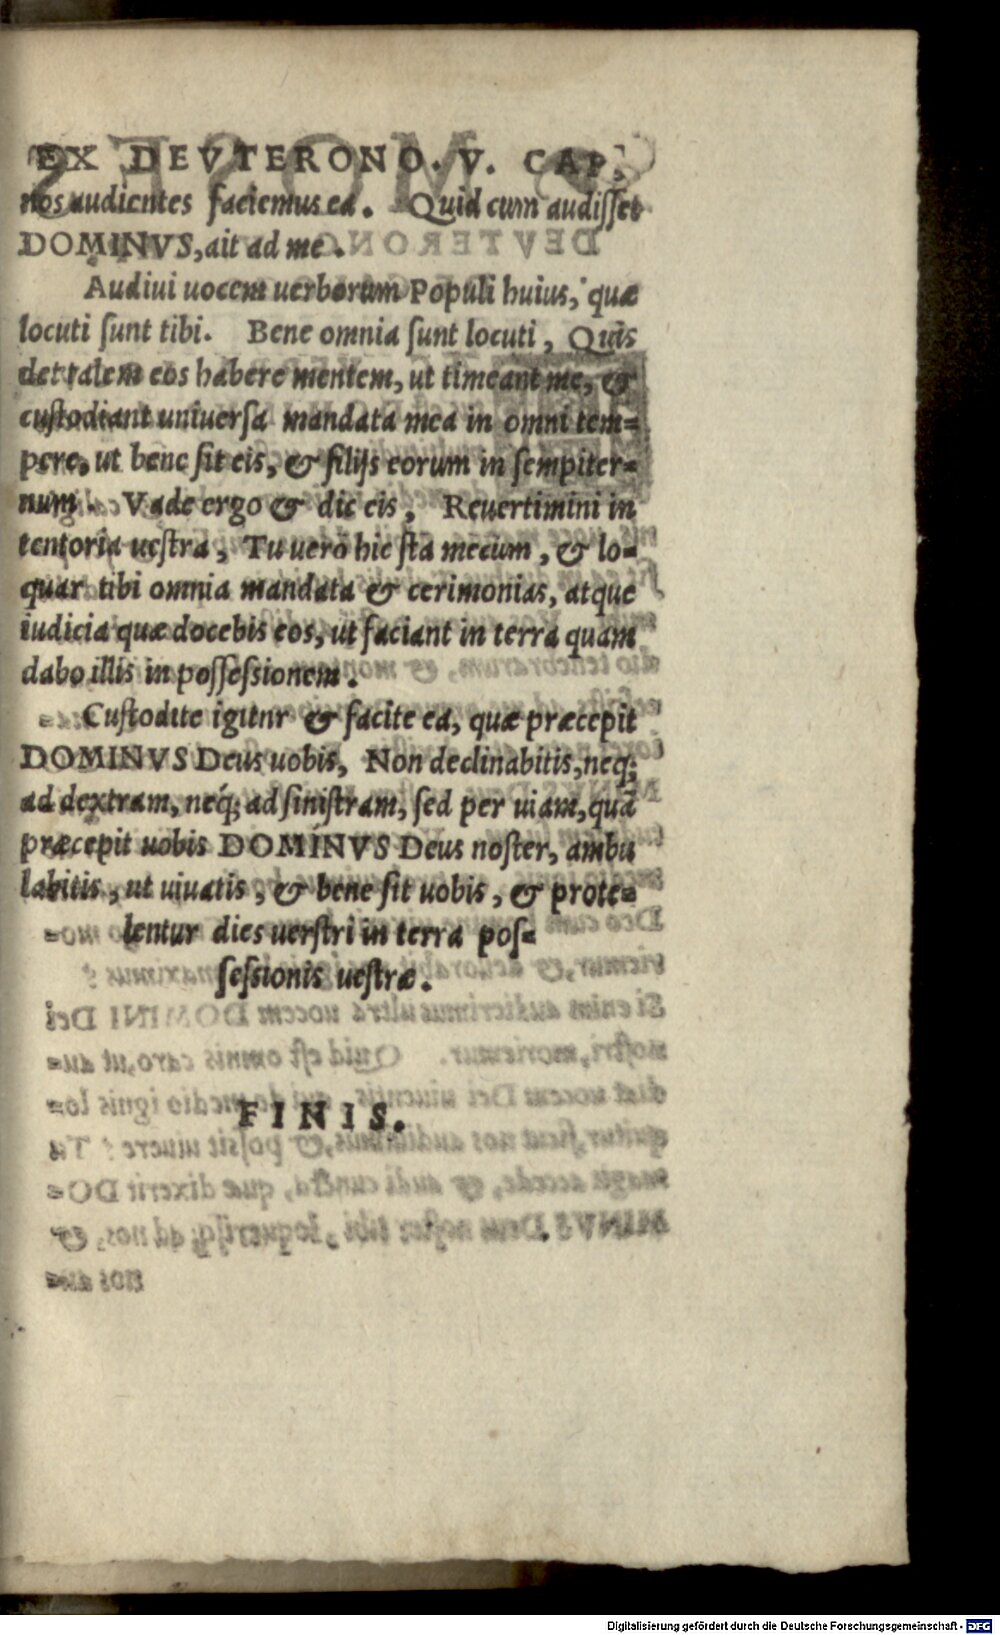 EX DEVTERONO. V. CAP.
nos audientes faciemus ea. Quid cum audisset
DOMINVS, ait ad me.
Audiui uocem uerborum Populi huius, quæ
locuti sunt tibi. Bene omnia sunt locuti, Quis
det talem eos habere mentem, ut timeant me, &
custodiant uniuersa mandata mea in omni tem=
pere, ut bene sit eis, & filijs eorum in sempiter=
num. Vade ergo & dic eis, Reuertimini in
tentoria uestra, Tu uero hic sta mecum, & lo=
quar tibi omnia mandata & cerimonias, atque
iudicia quæ docebis eos, ut faciant in terra quam
dabo illis in possessionem.
Custodite igitnr & facite ea, quæ præcepit
DOMINVS Deus uobis, Non declinabitis, neq;
ad dextram, neq́; ad sinistram, sed per uiam, quā
præcepit uobis DOMINVS Deus noster, ambu
labitis, ut uiuatis, & bene sit uobis, & prote=
lentur dies uerstri in terra pos=
sessionis uestræ.
FINIS.
Digitalisierung gefördert durch die Deutsche Forschungsgemeinschaft - DFG